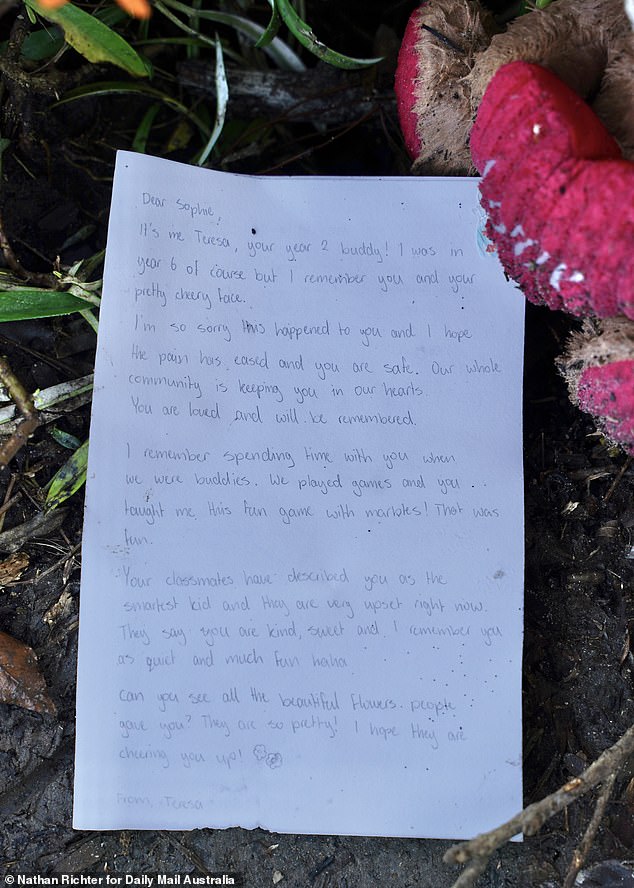 Dear Sophie,
It's me Teresa, your year 2 buddy! I was in
year 6 of course but I remember you and your
pretty cheery face.
I'm so sorry this happened to you and I hope
the pain has eased and you are safe. Our whole
community is keeping you in our hearts.
You are loved and will be remembered.
I remember spending time with you when
we were buddies. We played games and you
taught me this fun game with marbles! That was
fun.
Your classmates have described you as the
smartest kid and they are very upset right now.
They say you are kind, sweet and I remember you
as quiet and much fun haha
can you see all the beautiful flowers people
gave you? They are so pretty! I hope they are
cheering you up!
From, Teresa
© Nathan Richter for Daily Mail Australia